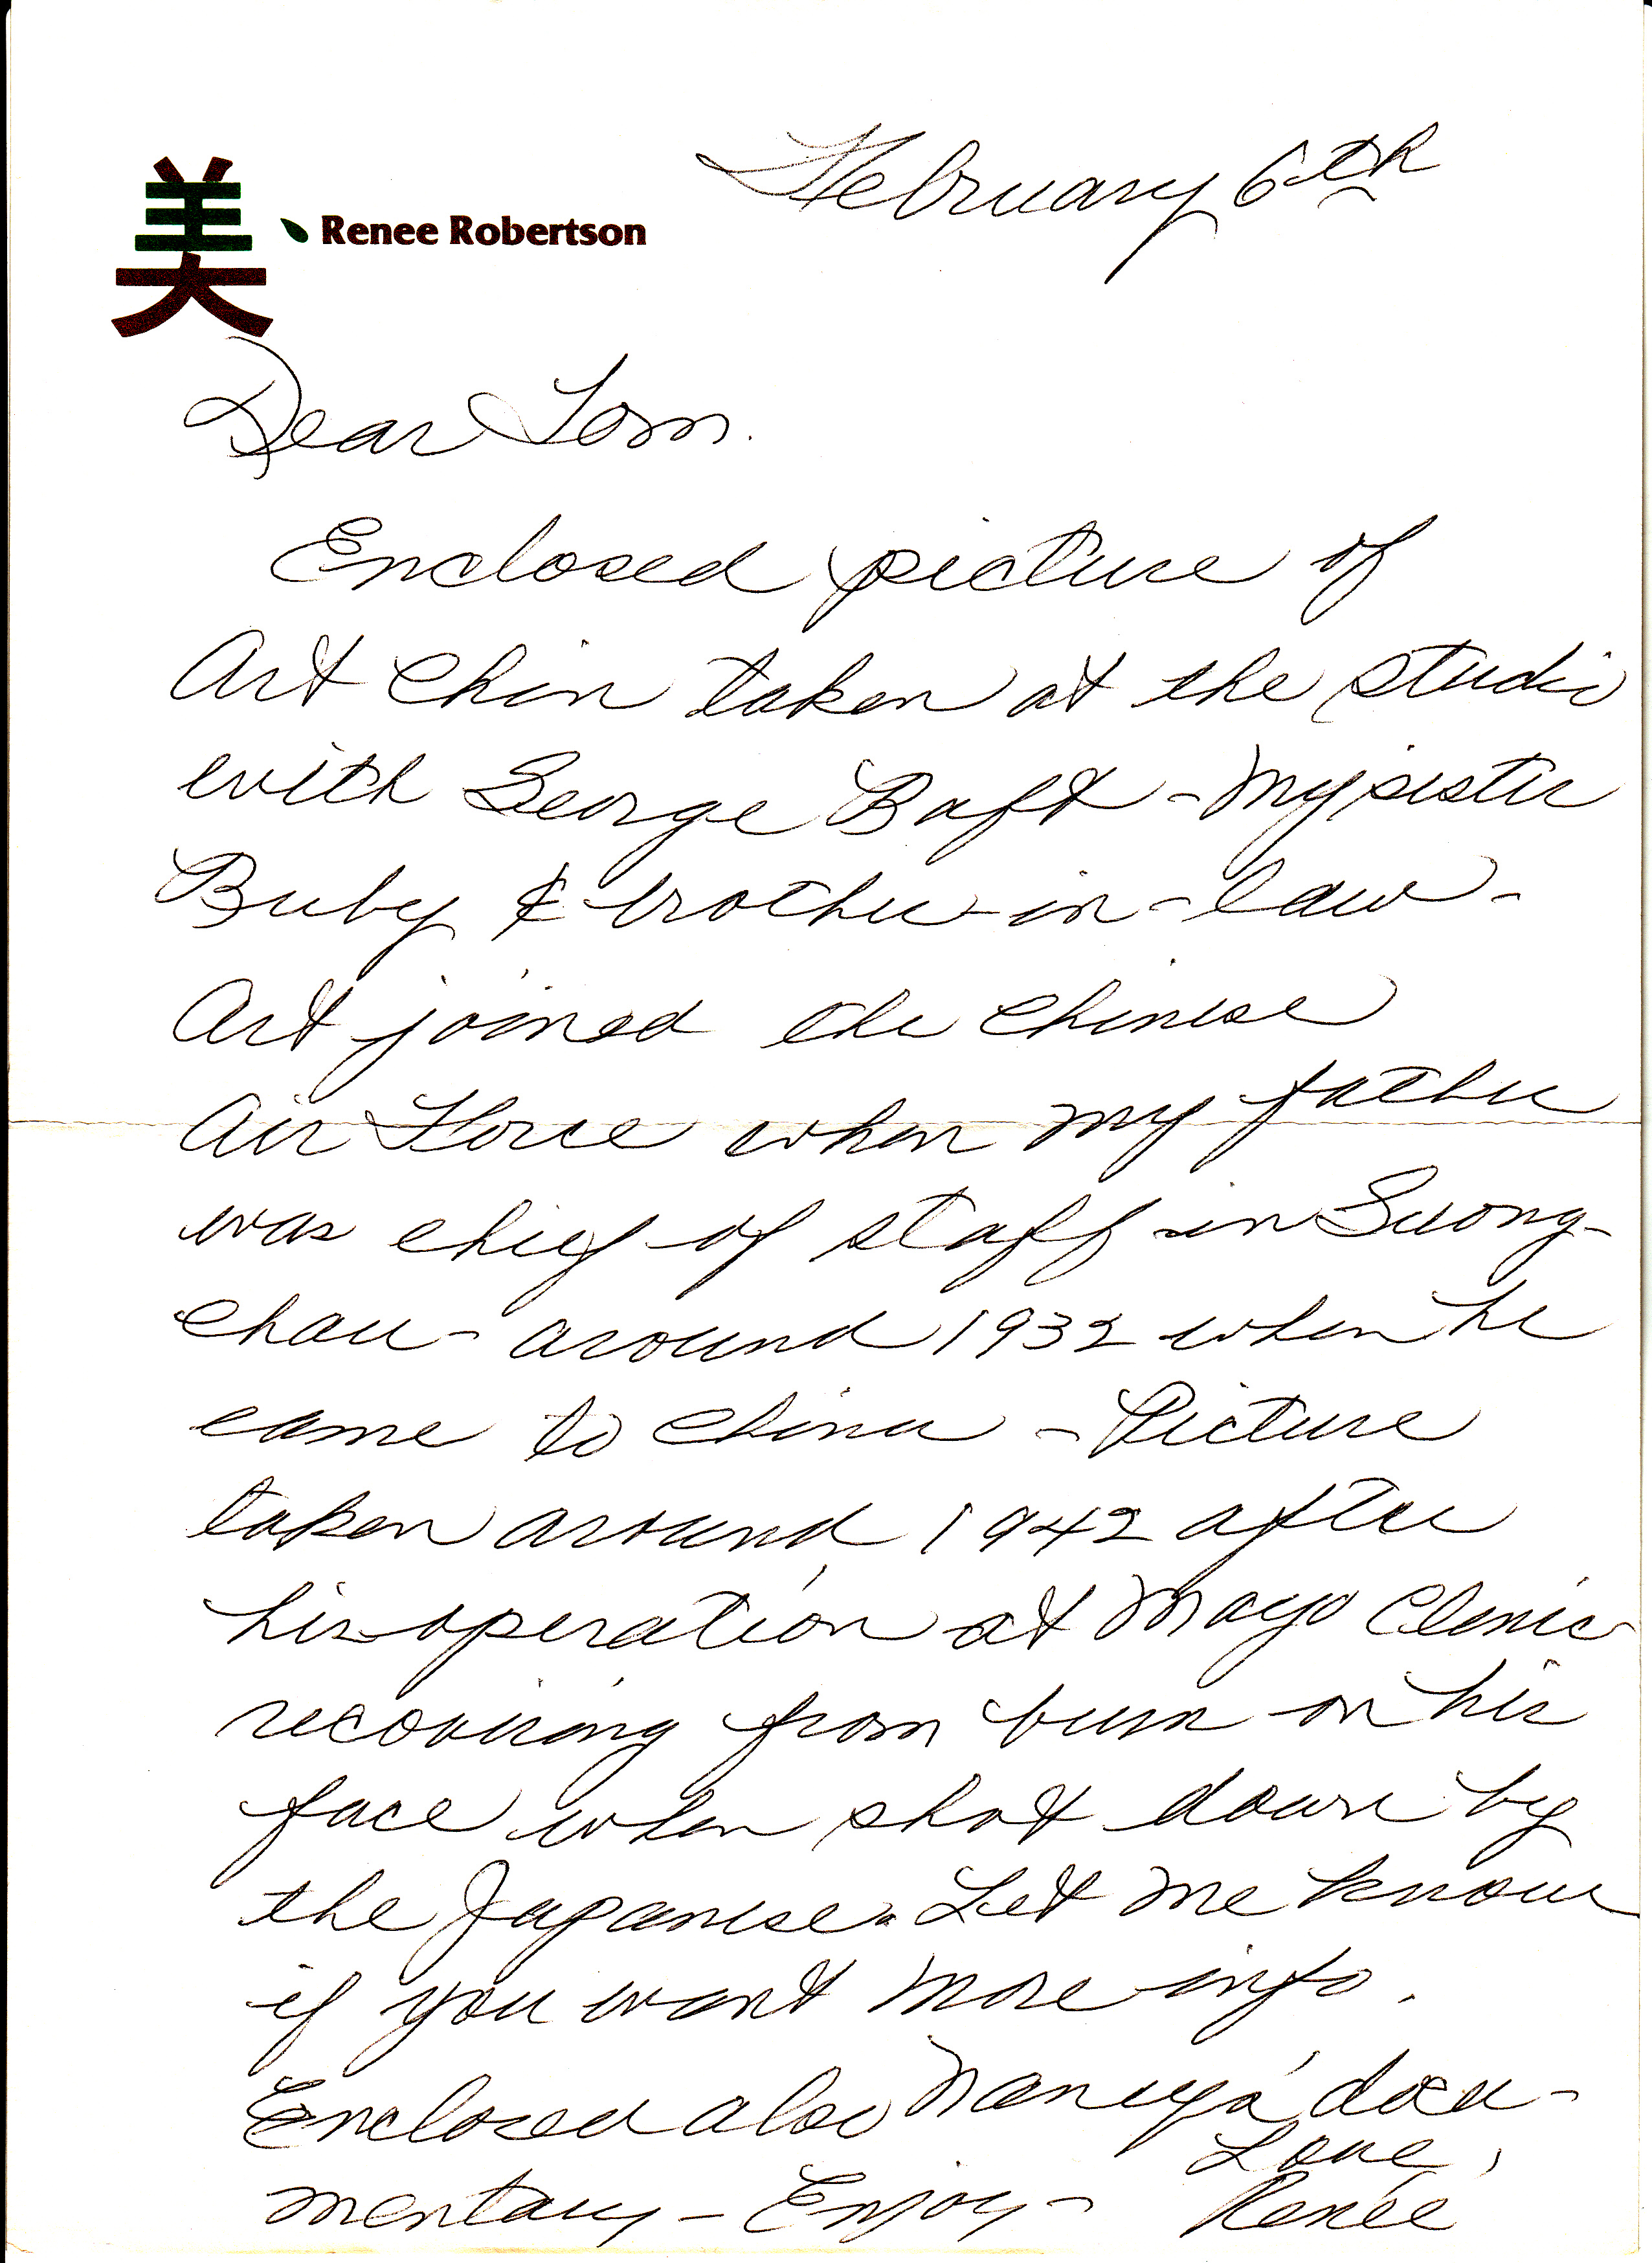 February 6th
美 Renee Robertson
Dear Tom.
Enclosed picture of
Art Chin taken at the studio
with George Baft - My sister
Ruby & brother-in-law -
Art joined the Chinese
Air Force when my father
was chief of staff in Guong-
chau - around 1932 when he
came to China - Picture
taken around 1942 after
his operation at Mayo Clinic
recovering from burn on his
face when shot down by
the Japanese. Let me know
if you want more info.
Enclosed also docu-
mentary - Enjoy -
Love,
Renée